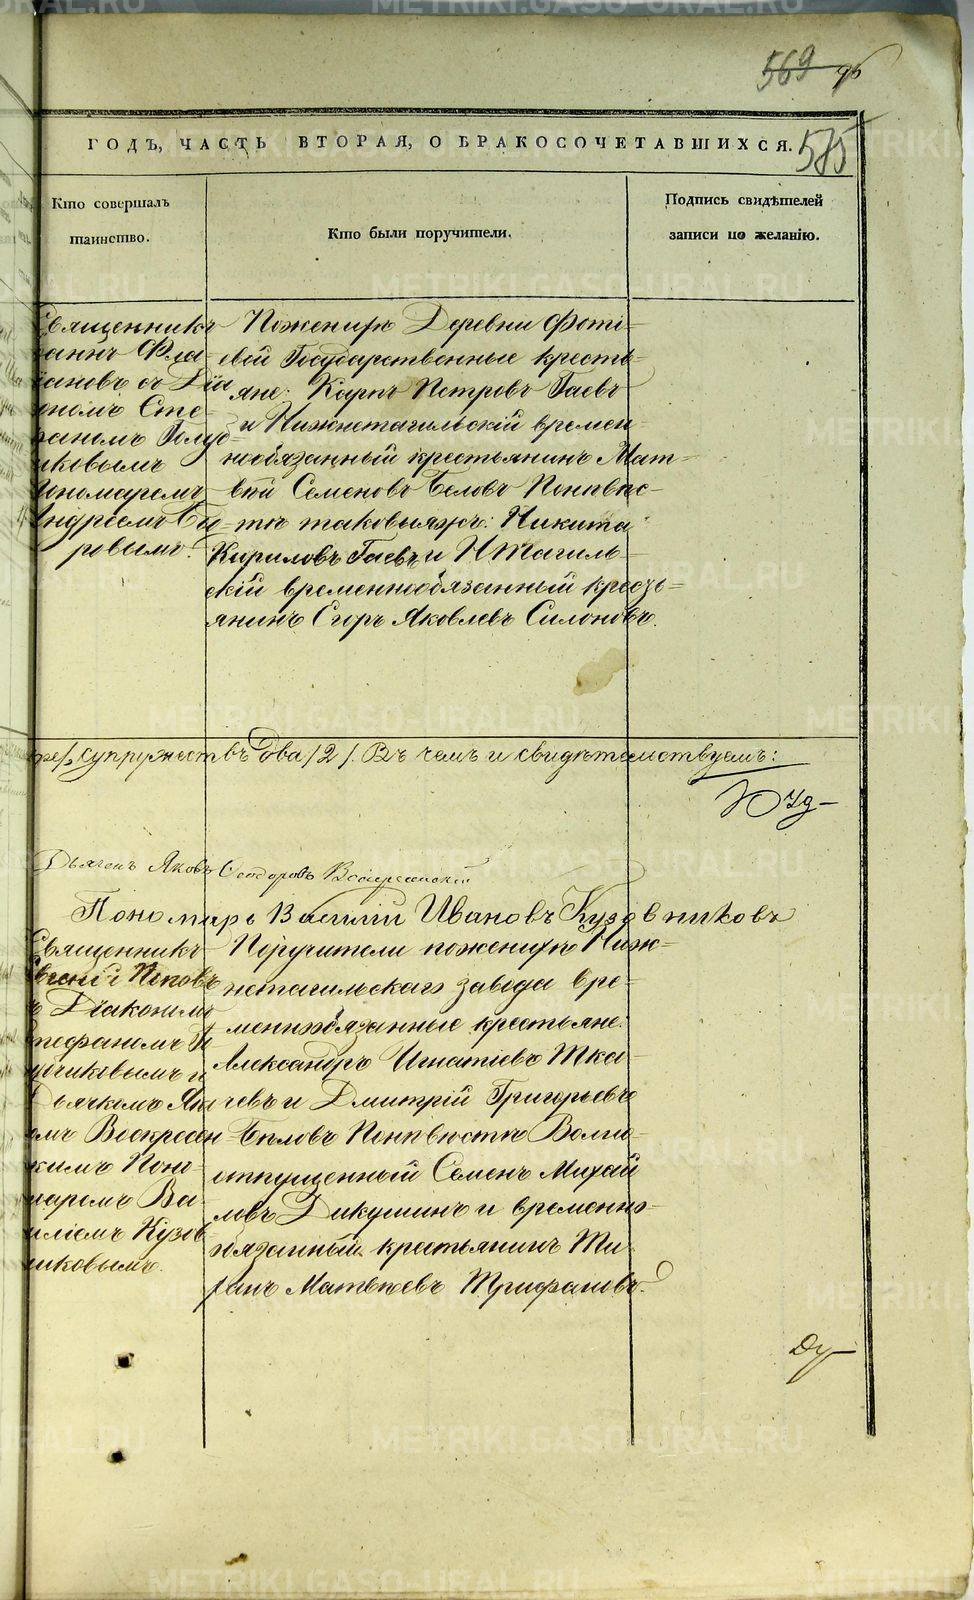 569 96
ГОДЪ, ЧАСТЬ ВТОРАЯ, О БРАКОСОЧЕТАВШИХСЯ.
585
Кто совершалъ
таинство.
Кто были поручители.
Подпись свидѣтелей
записи по желанію.
Священникъ
Фла-
новъ съ Діа
кономъ Сте-
фаномъ Голуб-
чиковымъ
Пономаремъ
Андреемъ
ровымъ.
По женихѣ Деревни Фоті-
вой Государственные кресть-
яне: Карпъ Петровъ Гаевъ
и Нижнетагильскій времен-
нообязанный крестьянинъ Мат-
вѣй Семеновъ Бѣловъ По невѣс-
тѣ таковыяжъ: Никита
Кириловъ Гаевъ и НТагиль-
скій временнообязанный кресть-
янинъ Егоръ Яковлевъ Силоновъ.
супружествъ Два /2/. Въ чемъ и свидѣтельствуемъ:
Дьячекъ Яковъ Феодоровъ Воскресенскій
Пономарь Василій Ивановъ Кузовниковъ
Священникъ
Евгеній Поповъ
съ Діакономъ
Стефаномъ Го
лубчиковымъ и
Дьячкомъ Яко
вомъ Воскресен
скимъ Поно-
маремъ Ва-
силіемъ Кузов
никовымъ.
Поручители по женихѣ Ниж-
нетагильскаго завода вре-
меннообязанные крестьяне:
Александръ Игнатіевъ Тка-
чевъ и Дмитрій Григорьевъ
Бѣловъ По невѣстѣ Волно-
отпущенный Семенъ Михай
ловъ Дикушинъ и временно-
обязанный крестьянинъ Ти-
Матвѣевъ Трифановъ.
METRIKI.GASO-URAL.RU